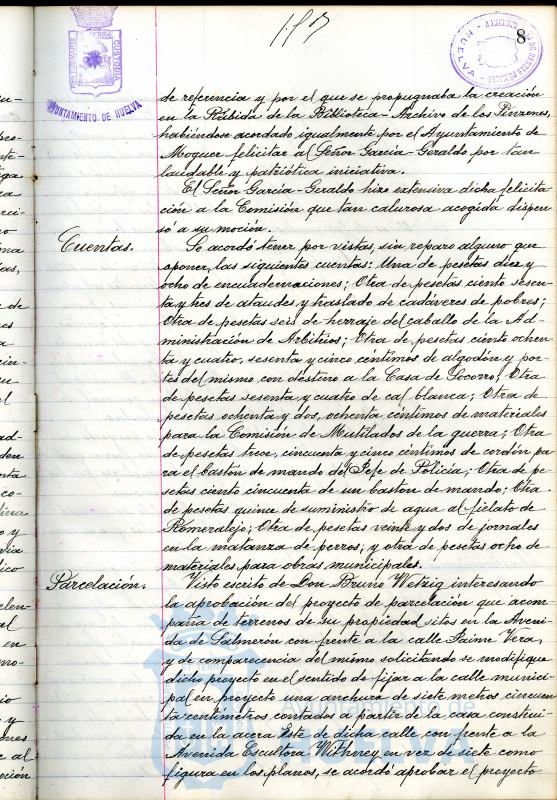 8
AYUNTAMIENTO DE HUELVA
HUELVA
de referencia y por el que se propugnaba la creación
en la Rábida de la Biblioteca-Archivo de los Pinzones,
habiéndose acordado igualmente por el Ayuntamiento de
Moguer felicitar al Señor García-Geraldo por tan
laudable y patriótica iniciativa.
El Señor García-Geraldo hizo extensiva dicha felicita-
ción a la Comisión que tan calurosa acogida dispen-
só a su moción.
Cuentas.
Se acordó tener por vistas, sin reparo alguno que
oponer, las siguientes cuentas: Una de pesetas diez y
ocho de encuadernaciones; Otra de pesetas ciento sesen-
ta y tres de ataudes y traslado de cadáveres de pobres;
Otra de pesetas seis de herraje del caballo de la Ad-
ministración de Arbitrios; Otra de pesetas ciento ochen-
ta y cuatro, sesenta y cinco céntimos de algodón y por-
tes del mismo con destino a la Casa de Socorro; Otra
de pesetas sesenta y cuatro de cal blanca; Otra de
pesetas ochenta y dos, ochenta céntimos de materiales
para la Comisión de Mutilados de la guerra; Otra
de pesetas trece, cincuenta y cinco céntimos de cordón pa-
ra el bastón de mando del Jefe de Policía; Otra de pe-
setas ciento cincuenta de un baston de mando; Otra
de pesetas quince de suministro de agua al fielato de
Romeralejo; Otra de pesetas veinte y dos de jornales
en la matanza de perros; y otra de pesetas ocho de
materiales para obras municipales.
Parcelación.
Visto escrito de Don Bruno Wetzig interesando
la aprobación del proyecto de parcelación que acom-
paña de terrenos de su propiedad sitos en la Aveni-
da de Salmerón con frente a la calle Jaime Vera,
y de comparecencia del mismo solicitando se modifique
dicho proyecto en el sentido de fijar a la calle munici-
pal en proyecto una anchura de siete metros cincuen-
ta centímetros contados a partir de la casa construi-
da en la acera Este de dicha calle con frente a la
Avenida Escultora Withney en vez de siete como
figura en los planos, se acordó aprobar el proyecto
Ayuntamiento de